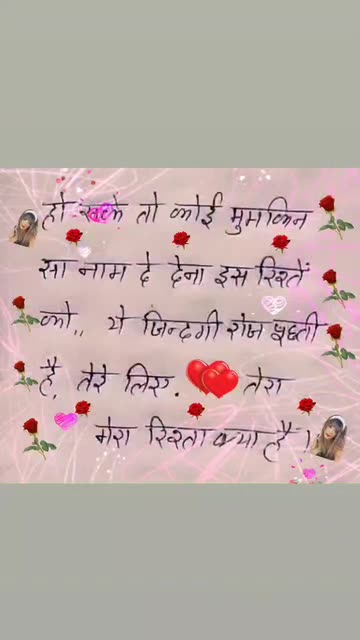 हो सके तो कोई मुमकिन
सा नाम दे देना इस रिश्तें
को,, ये जिन्दगी रोज पुछती
है, तेरे लिए. तेरा
मेरा रिश्ता क्या है।